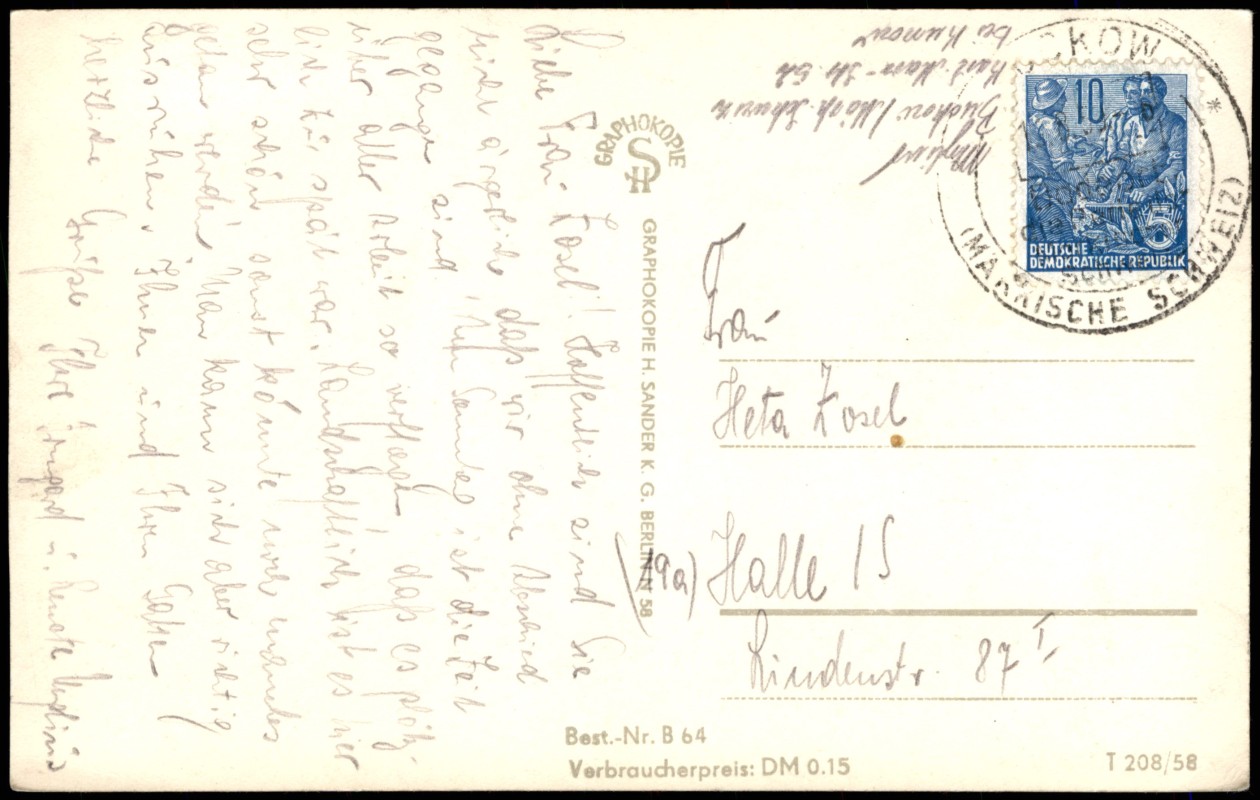 Liebe Frau Zosel! Hoffentlich sind Sie
nicht ärgerlich, daß wir ohne Abschied
gegangen sind. Am Sonntag ist die Zeit
über aller Arbeit so verflogen daß es plötz-
lich zu spät war. Landschaftlich ist es hier
sehr schön, sonst könnte noch manches
getan werden. Man kann sich aber richtig
ausruhen. Ihnen und Ihrem Gatten
herzliche Grüße Ihre Irmgard u. Renate
GRAPHOKOPIE
HS
GRAPHOKOPIE H. SANDER K. G. BERLIN N 58
Buckow / Märk. Schweiz
Karl-Marx-Str.
bei
CKOW
(MÄRKISCHE SCHWEIZ)
10
5
DEUTSCHE
DEMOKRATISCHE REPUBLIK
Frau
Heta Zosel
(19a) Halle 15
Lindenstr. 87 I
Best.-Nr. B 64
Verbraucherpreis: DM 0.15
T 208/58